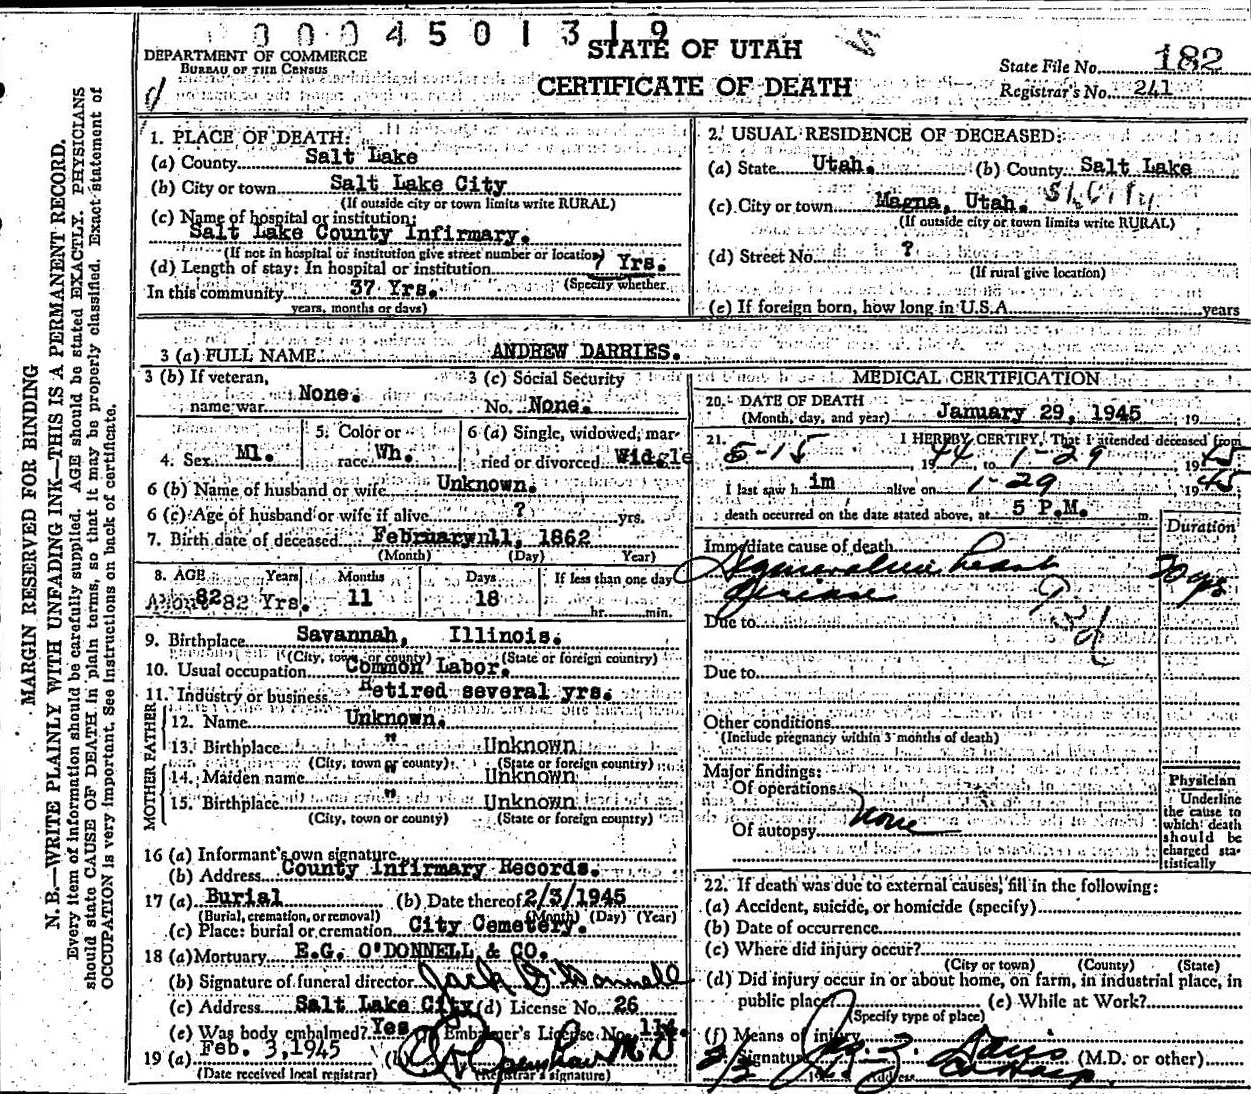 0004501319
STATE OF UTAH
CERTIFICATE OF DEATH
DEPARTMENT OF COMMERCE
BUREAU OF THE CENSUS
State File No. 182
Registrar's No. 241
MARGIN RESERVED FOR BINDING
N. B.—WRITE PLAINLY WITH UNFADING INK—THIS IS A PERMANENT RECORD.
Every item of information should be carefully supplied. AGE should be stated EXACTLY. PHYSICIANS
should state CAUSE OF DEATH in plain terms, so that it may be properly classified. Exact statement of
OCCUPATION is very important. See instructions on back of certificate.
1. PLACE OF DEATH:
(a) County Salt Lake
(b) City or town Salt Lake City
(If outside city or town limits write RURAL)
(c) Name of hospital or institution:
Salt Lake County Infirmary.
(If not in hospital or institution give street number or location)
(d) Length of stay: In hospital or institution 7 Yrs.
(Specify whether
In this community 37 Yrs.
years, months or days)
2. USUAL RESIDENCE OF DECEASED:
(a) State Utah. (b) County Salt Lake
(c) City or town Magna, Utah. SL City
(If outside city or town limits write RURAL)
(d) Street No. ?
(If rural give location)
(e) If foreign born, how long in U.S.A. years
3 (a) FULL NAME ANDREW DARRIES.
3 (b) If veteran, name war None.
3 (c) Social Security No. None.
4. Sex Ml.
5. Color or race Wh.
6 (a) Single, widowed, married or divorced Widgle
6 (b) Name of husband or wife Unknown.
6 (c) Age of husband or wife if alive ? yrs.
7. Birth date of deceased Februarwull, 1862
(Month) (Day) Year)
8. AGE Years Months Days If less than one day
About 82 82 Yrs. 11 18 hr. min.
9. Birthplace Savannah, Illinois.
(City, town or county) (State or foreign country)
10. Usual occupation Common Labor.
11. Industry or business Retired several yrs.
FATHER
12. Name Unknown.
13. Birthplace " Unknown
(City, town or county) (State or foreign country)
MOTHER
14. Maiden name " Unknown
15. Birthplace " Unknown
(City, town or county) (State or foreign country)
16 (a) Informant's own signature
(b) Address County Infirmary Records.
17 (a) Burial (b) Date thereof 2/3/1945
(Burial, cremation, or removal) (Month) (Day) (Year)
(c) Place: burial or cremation City Cemetery.
18 (a) Mortuary E.G. O'DONNELL & CO.
(b) Signature of funeral director Jack O'Donnell
(c) Address Salt Lake City (d) License No. 26
(e) Was body embalmed? Yes Embalmer's License No. 114.
19 (a) Feb. 3, 1945 (b) M D
(Date received local registrar) (Registrar's signature)
MEDICAL CERTIFICATION
20. DATE OF DEATH
(Month, day, and year) January 29, 1945 19
21. I HEREBY CERTIFY, That I attended deceased from
5-15 1944 to 1-29 1945
I last saw h im alive on 1-29 1945
death occurred on the date stated above, at 5 P.M. m.
Duration
Immediate cause of death
heart
disease
Due to
Due to
Other conditions
(Include pregnancy within 3 months of death)
Major findings:
Of operations
Of autopsy None
Physician
Underline
the cause to
which death
should be
charged sta-
tistically
22. If death was due to external causes, fill in the following:
(a) Accident, suicide, or homicide (specify)
(b) Date of occurrence
(c) Where did injury occur?
(City or town) (County) (State)
(d) Did injury occur in or about home, on farm, in industrial place, in
public place? (e) While at Work?
(Specify type of place)
(f) Means of injury
Signature Davis (M.D. or other)
2/3 1945 Address Co Hosp.